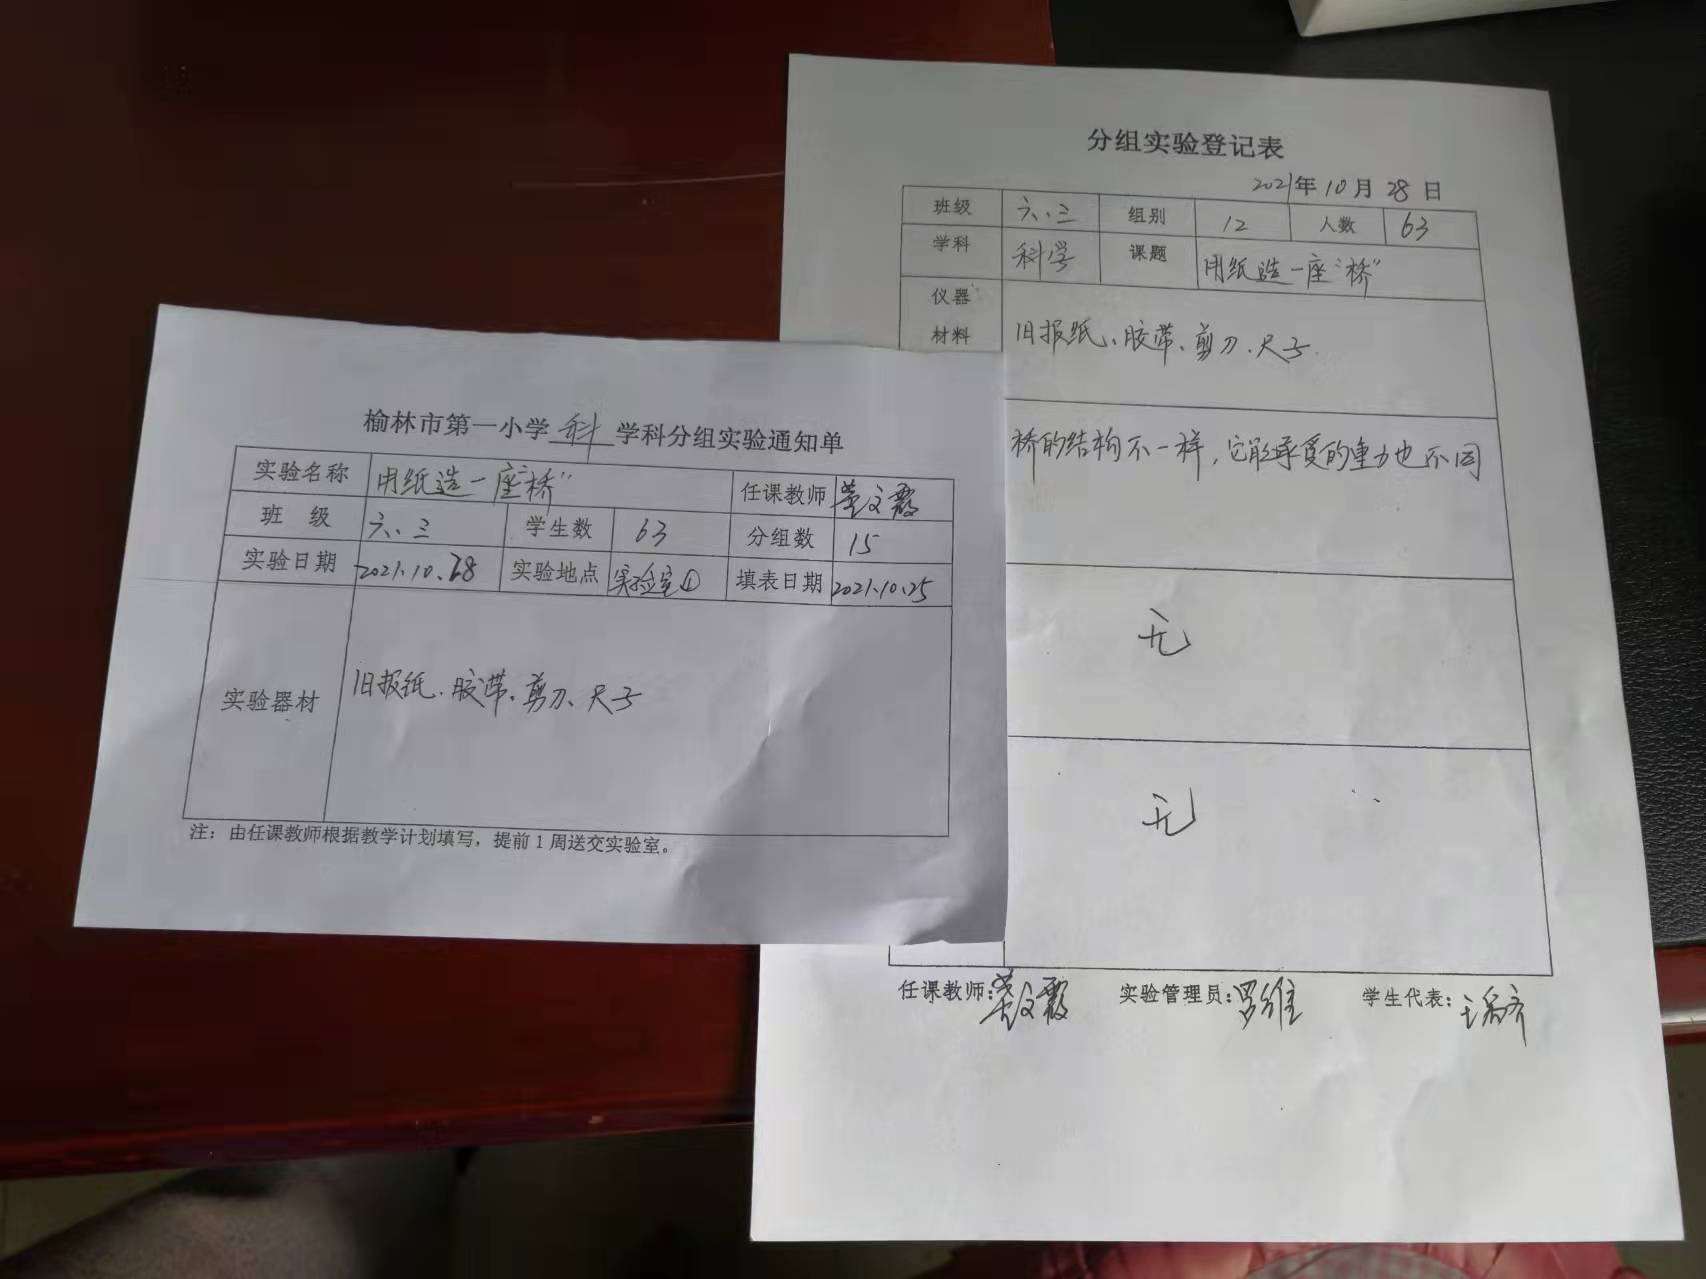 榆林市第一小学 科 学科分组实验通知单
实验名称 用纸造一座“桥” 任课教师
班 级 六、三 学生数 63 分组数 15
实验日期 2021.10.28 实验地点 实验室① 填表日期 2021.10.25
实验器材 旧报纸、胶带、剪刀、尺子
注：由任课教师根据教学计划填写，提前1周送交实验室。
分组实验登记表
2021年10月28日
班级 六、三 组别 12 人数 63
学科 科学 课题 用纸造一座“桥”
仪器
材料 旧报纸、胶带、剪刀、尺子
桥的结构不一样，它能承受的重力也不同
无
无
任课教师： 实验管理员：罗维 学生代表：